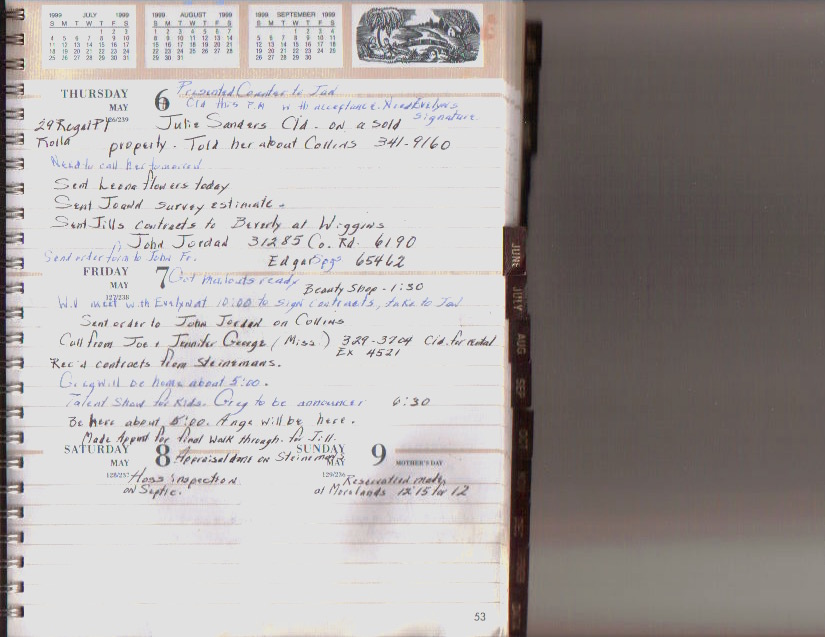 1999 JULY 1999
S M T W T F S
1 2 3
4 5 6 7 8 9 10
11 12 13 14 15 16 17
18 19 20 21 22 23 24
25 26 27 28 29 30 31
1999 AUGUST 1999
S M T W T F S
1 2 3 4 5 6 7
8 9 10 11 12 13 14
15 16 17 18 19 20 21
22 23 24 25 26 27 28
29 30 31
1999 SEPTEMBER 1999
S M T W T F S
1 2 3 4
5 6 7 8 9 10 11
12 13 14 15 16 17 18
19 20 21 22 23 24 25
26 27 28 29 30
THURSDAY 6 Presented Counter to Jan
MAY Cld this P.M with acceptance. Need Evelyns
126/239 signature
29 Regal Pl Julie Sanders Cld. on a sold
Rolla property. Told her about Collins 341-9160
Need to call her tomorrow
Sent Leona flowers today
Sent Joann survey estimate
Sent Jills contracts to Beverly at Wiggins
" John Jordan 31285 Co. Rd. 6190
Send order form to John Fr. Edgar Spgs 65462
FRIDAY 7 Got mailouts ready
MAY Beauty Shop - 1:30
127/238
Will meet with Evelyn at 10:00 to sign contracts, take to Jan
Sent order to John Jordan on Collins
Call from Joe & Jennifer George (Miss.) 329-3704 Cld. for rental
Ex 4521
Rec'd contracts from Steinemans.
Greg will be home about 5:00.
Talent Show for Kids. Greg to be announcer 6:30
Be here about 5:00. Ange will be here.
Made Appmt for final walk through for Jill.
SATURDAY 8 Appraisal done on Steinemans
MAY
128/237 Hoss inspection
on Septic.
SUNDAY 9 MOTHER'S DAY
MAY
129/236 Reservation made
at Morelands 12:15 for 12
JUNE
JULY
AUG
SEP
OCT
53